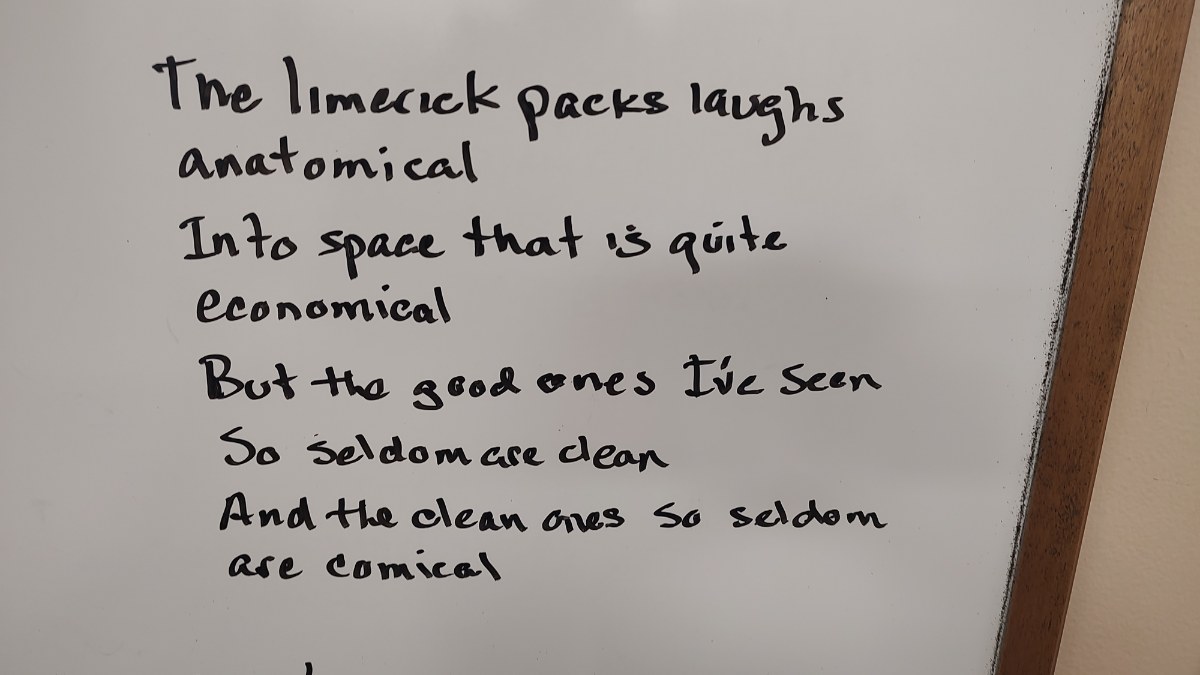 The limerick packs laughs
anatomical
Into space that is quite
economical
But the good ones I've seen
So seldom are clean
And the clean ones so seldom
are comical